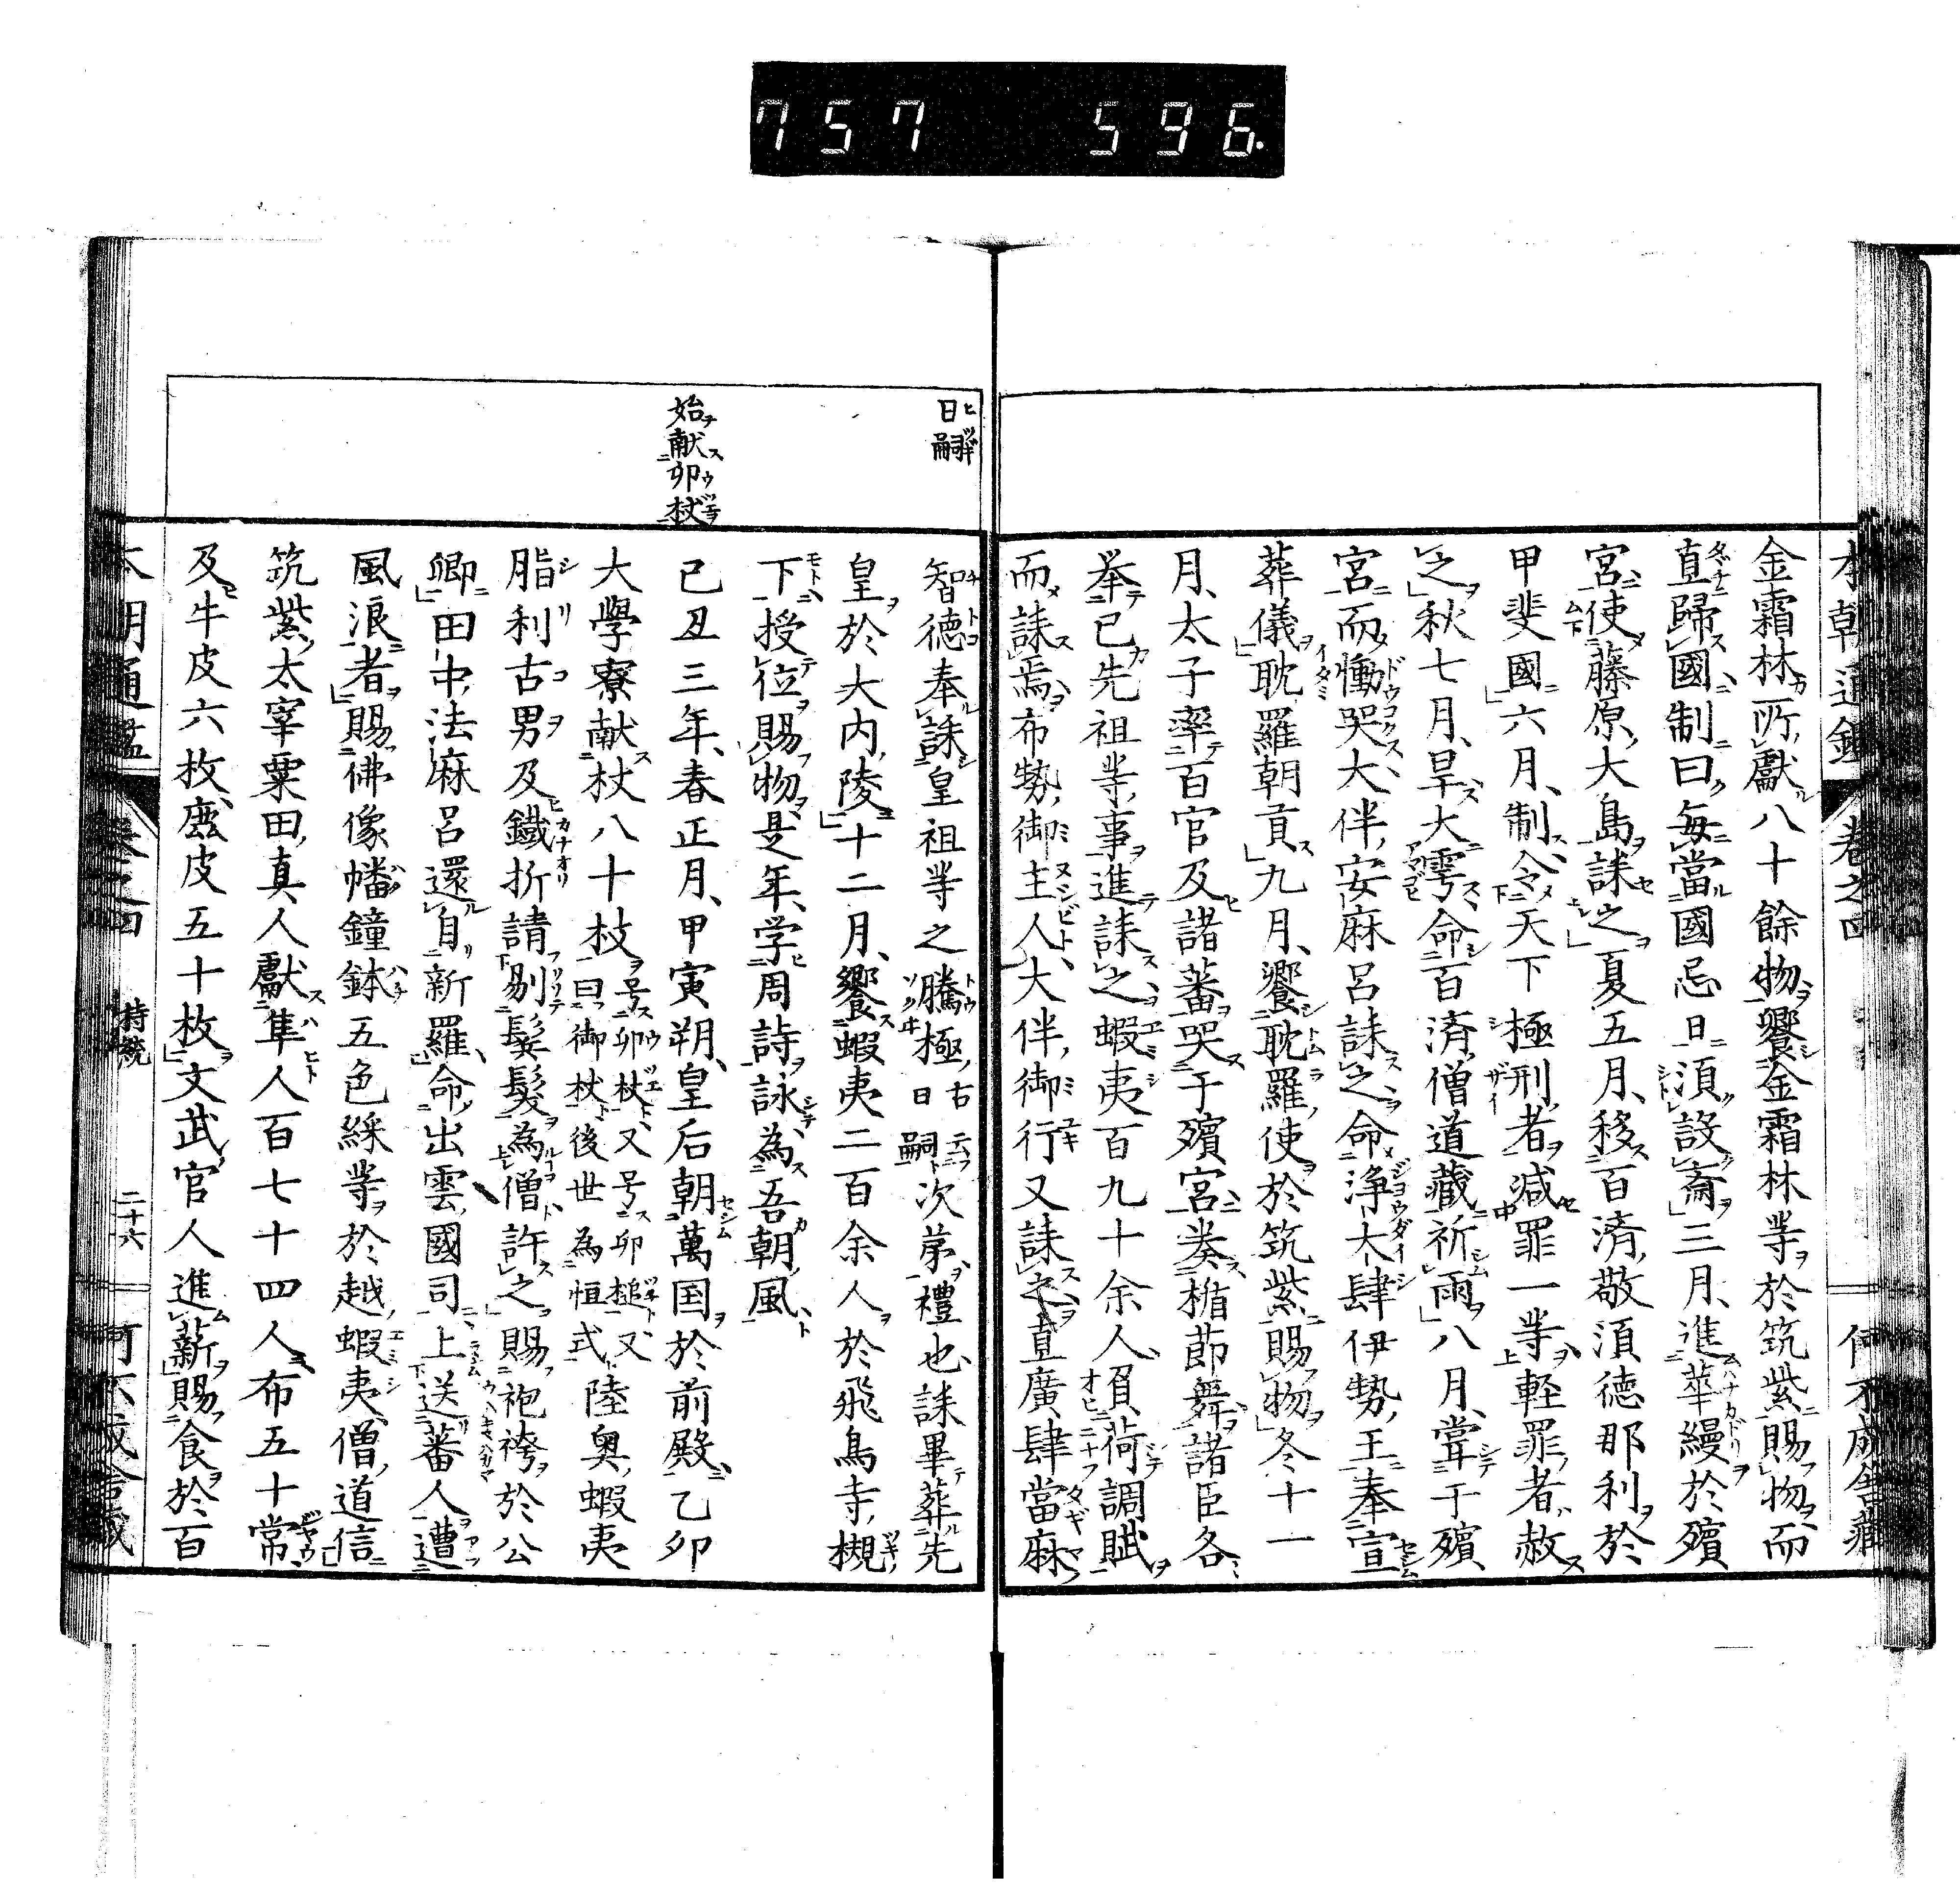 757 596.
本朝通鑑 卷之四 何不成舎藏
金霜林所獻八十餘物饗金霜林等於筑紫賜物而
直歸國制曰每當國忌日須設齋三月進華縵於殯
宮使藤原大島誄之夏五月移百済敬須徳那利於
甲斐國六月制令天下極刑者減罪一等軽罪者赦
之秋七月旱大雩命百済僧道藏祈雨八月甞于殯
宮而慟哭大伴安麻呂誄之命浄大肆伊勢王奉宣
葬儀耽羅朝貢九月饗耽羅使於筑紫賜物冬十一
月太子率百官及諸蕃哭于殯宮奏楯莭舞諸臣各
举已先祖等事進誄之蝦夷百九十余人負荷調賦
而誄焉布勢御主人大伴御行又誄之直廣肆當麻
日嗣
智徳奉誄皇祖等之騰極古云日嗣次第禮也誄畢葬先
皇於大内陵十二月饗蝦夷二百余人於飛鳥寺槻
下授位賜物是年学周詩詠為吾朝風
始献卯杖
己丑三年春正月甲寅朔皇后朝萬国於前殿乙卯
大學寮献杖八十枝号卯杖又号卯槌又曰御杖後世為恒式陸奥蝦夷
脂利古男及鐵折請剔鬂髮為僧許之賜袍袴於公
卿田中法麻呂還自新羅命出雲國司上送蕃人遭
風浪者賜佛像幡鐘鉢五色綵等於越蝦夷僧道信
筑紫太宰粟田真人獻隼人百七十四人布五十常
及牛皮六枚麀皮五十枚文武官人進薪賜食於百
本朝通鑑 卷之四 持統 二十六 何不成舎藏